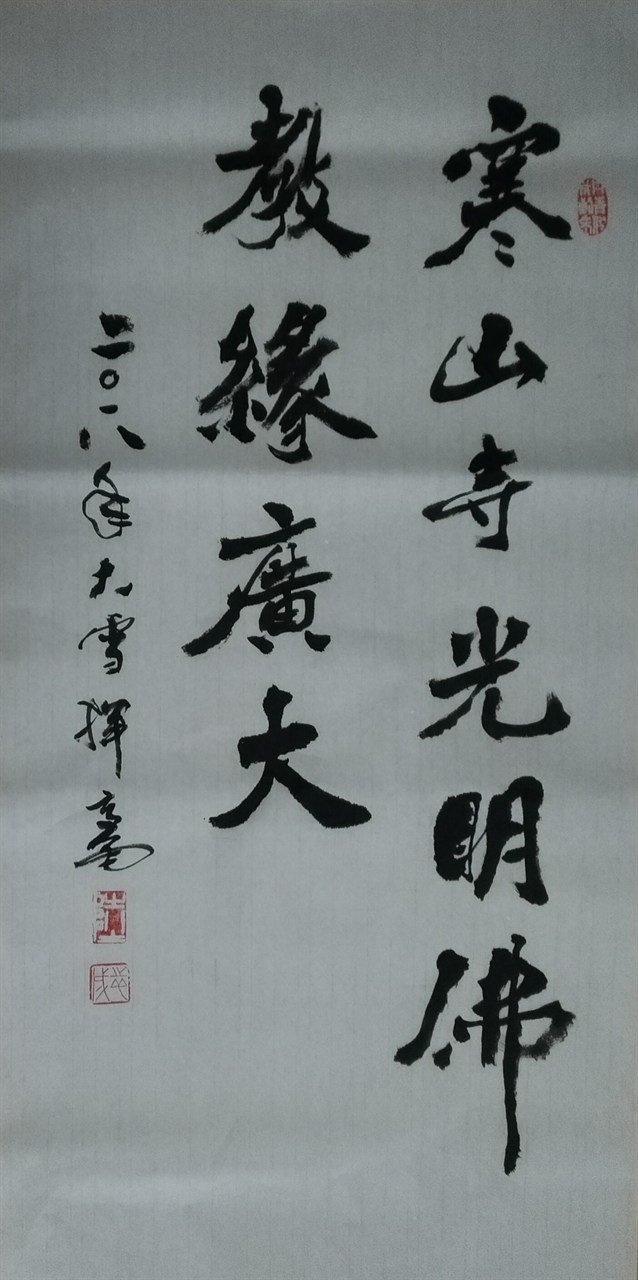 寒山寺光明佛
教緣廣大
二〇一八年大雪揮毫